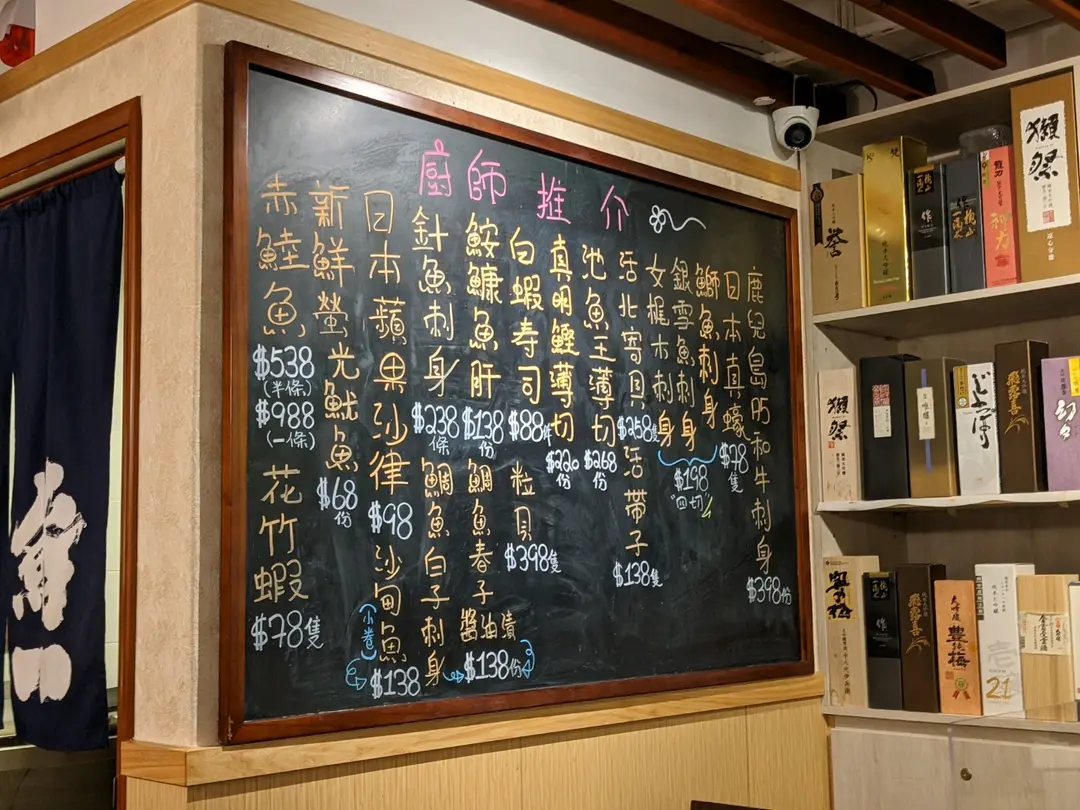 廚師推介
鹿兒島A5和牛刺身 $398份
日本真蠔 $78隻
鰤魚刺身
銀雪魚刺身
女梶木刺身
$198
"四切"
活北寄貝 $258隻
活帶子 $138隻
池魚王薄切 $268份
真明鰹薄切 $220份
白蝦寿司 $88件
粒貝 $398隻
鮟鱇魚肝 $138份
鯛魚春子
醬油漬
$138份
針魚刺身 $238條
鯛魚白子刺身
日本蘋果沙律 $98
沙甸魚
(小卷)
$138
新鮮螢光魷魚 $68份
赤鯥魚
$538
(半條)
$988
(一條)
花竹蝦 $78隻
獺祭
神力
作
誉
獺祭
飛露喜
幻々
作
飛露喜
豊能梅
21